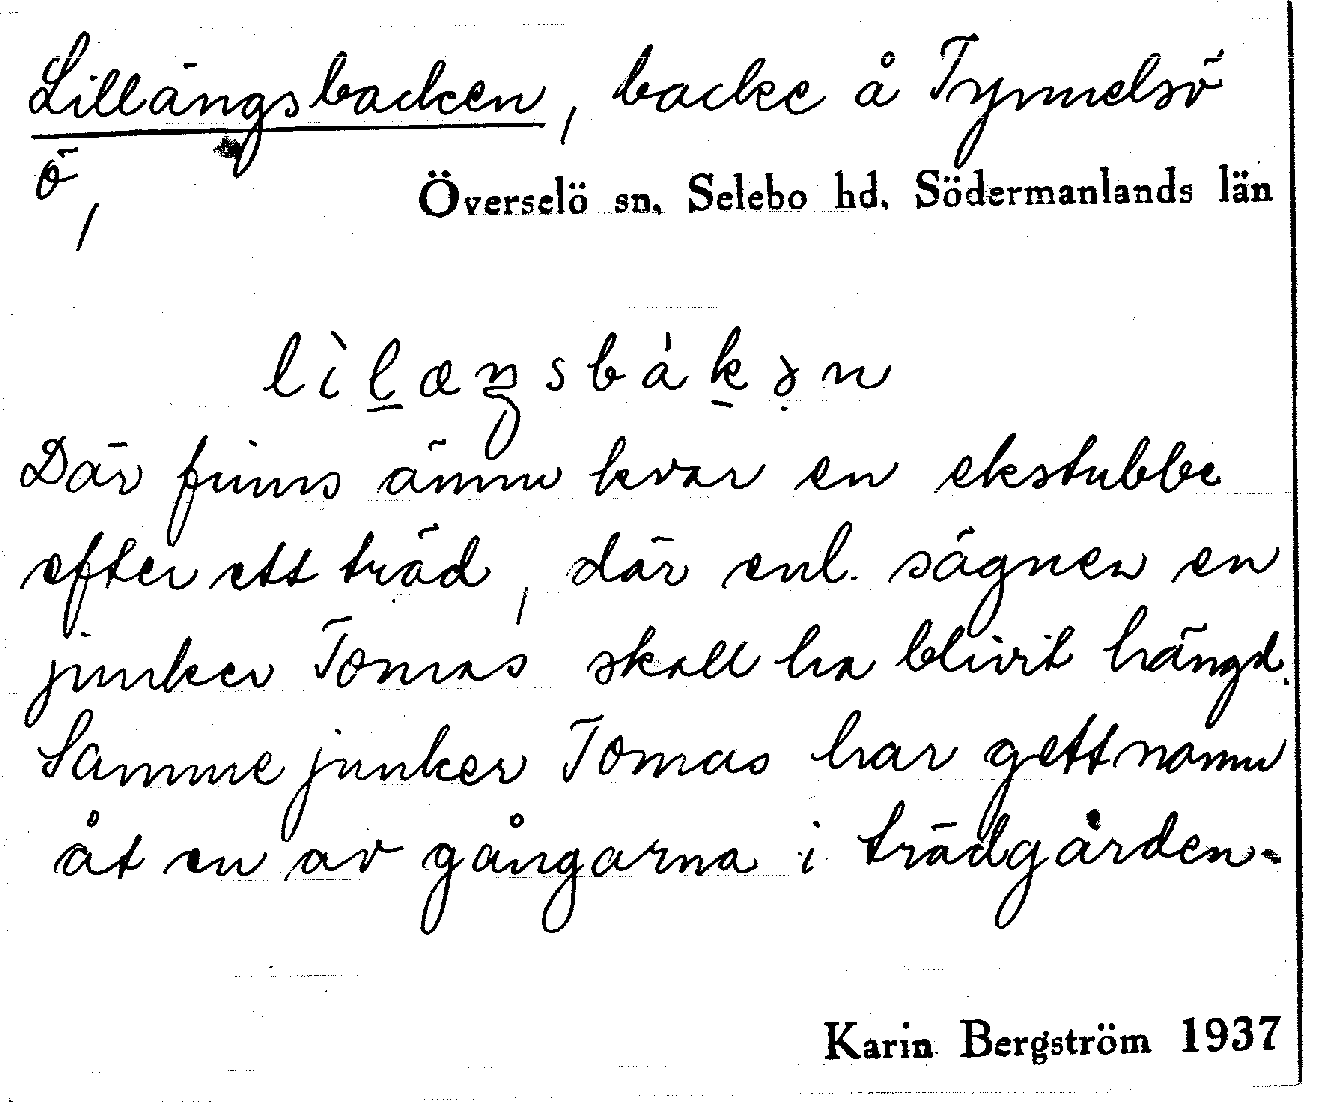 Lillängsbacken, backe å Tynnelsö
ö,
Överselö sn. Selebo hd. Södermanlands län
lìl̲æŋsbák̲ə̣n
Där finns ännu kvar en ekstubbe
efter ett träd, där enl. sägnen en
junker Tomas skall ha blivit hängd.
Samme junker Tomas har gett namn
åt en av gångarna i trädgården.
Karin Bergström 1937